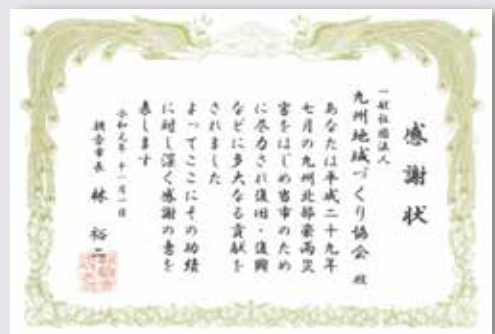 感謝状
一般社団法人
九州地域づくり協会 殿
あなたは平成二十九年
七月の九州北部豪雨災
害をはじめ当市のため
に尽力され復旧・復興
などに多大なる貢献を
されました
よってここにその功績
に対し深く感謝の意を
表します
令和元年十一月一日
朝倉市長 林 裕二